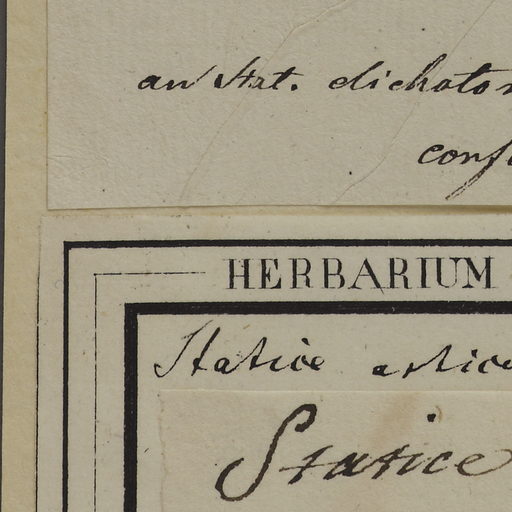 an Stat. dichoto
conf
HERBARIUM
Statice artic
Statice